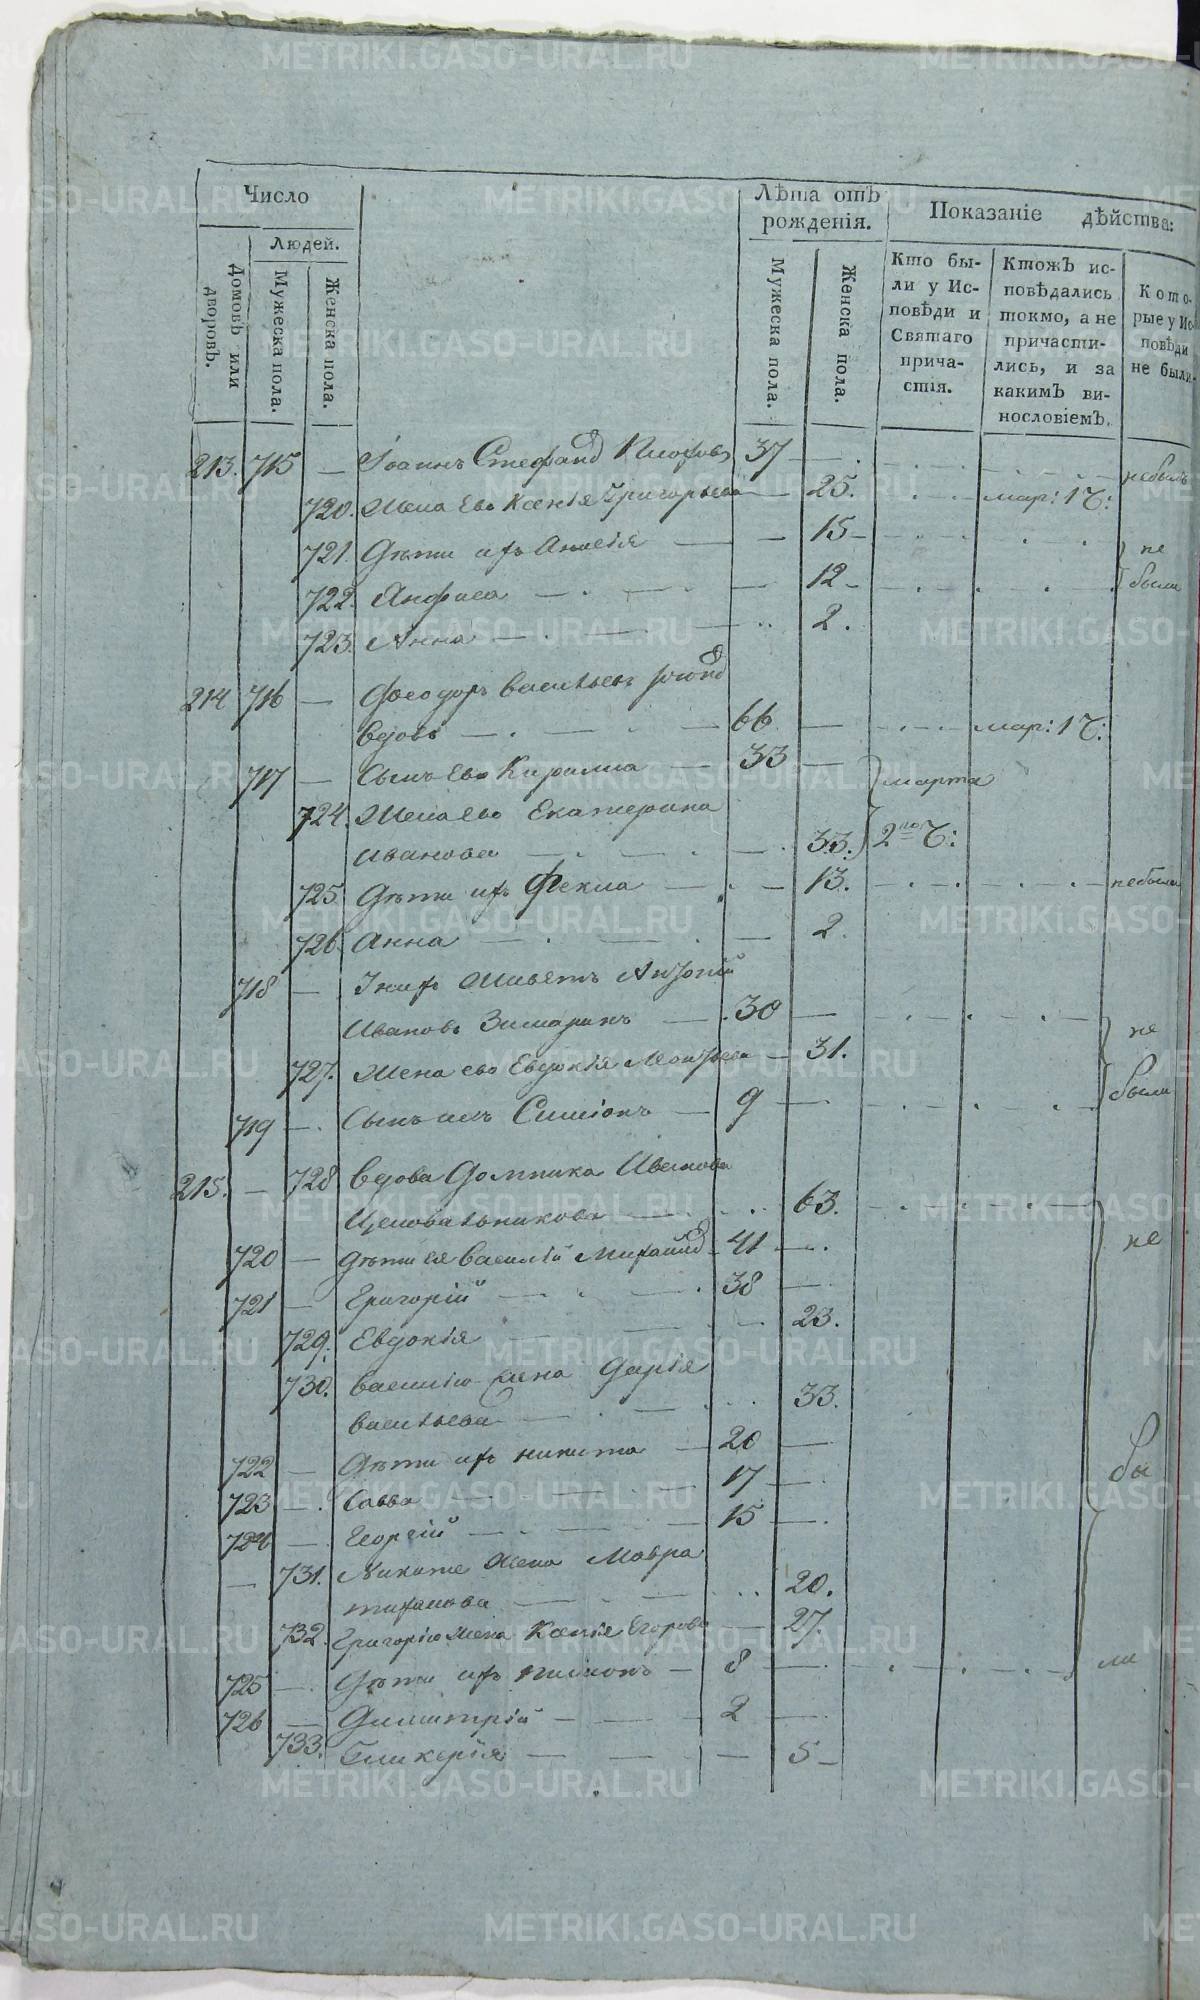 Число
Людей.
Домовъ или дворовъ.
Мужеска пола.
Женска пола.
Лѣта отъ рожденія.
Мужеска пола.
Женска пола.
Показаніе дѣйства:
Кто бы-
ли у Ис-
повѣди и
Святаго
прича-
стія.
Ктожъ ис-
повѣдались
токмо, а не
причасти-
лись, и за
какимъ ви-
нословіемъ.
Кото-
рые у Ис-
повѣди
не были.
213. 715 — Іоаннъ Стефано 37 — небылъ
720. Жена Ево Ксенія Григорьева — 25. мар: 1 Ч:
721. Дѣти ихъ — 15 — не
722. Анфиса — 12 — были
723. Анна — 2.
214 716 — Феодоръ Васильевъ
вдовъ — 66 — мар: 1 Ч:
717 — Сынъ Ево Кирилла — 33 — марта
724. Жена Ево Екатерина
Иванова — 33. 2го Ч:
725. Дѣти ихъ Фекла — 13. небыли
726. Анна — 2.
718 — Антоній
Ивановъ — 30 — не
727. Жена ево Евдокія — 31.
719 — Сынъ ихъ Симіонъ — 9 — были
215. — 728 Вдова Домника Иванова
Целовальникова — 63.
720 — Дѣти ея Василій Михайло 41 — не
721 — Григорій — 38 —
729. Евдокія — 23.
730. Василію жена Дарія
Васильева — 33.
722 — Дѣти ихъ Никита — 20 —
723 — Савва — 17 — бы
724 — Георгій — 15 —
— 731. Никите Жена Мавра
— 20.
732. Григорію Жена Ксенія Егорова — 27.
725 — Дѣти ихъ — 8 — ли
726 — Димитрій — 2 —
733. Гликерія — 5 —
METRIKI.GASO-URAL.RU